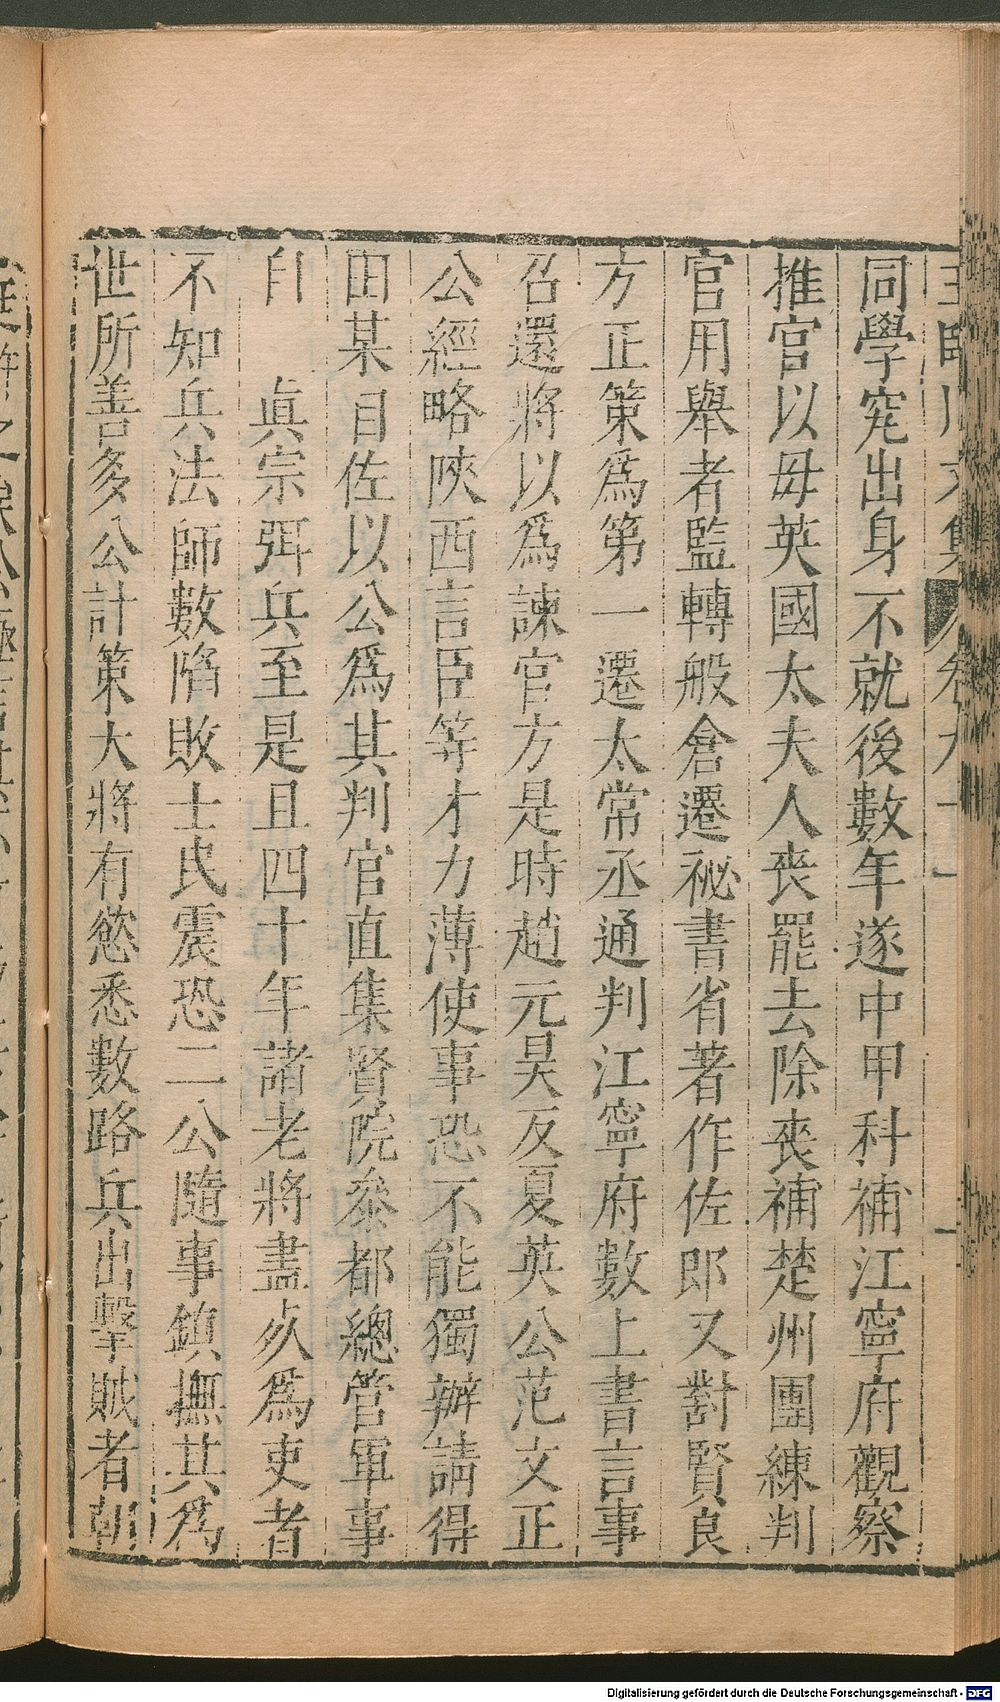 同學究出身不就後數年遂中甲科補江寧府觀察
推官以毋英國太夫人喪罷去除喪補楚州團練判
官用舉者監轉般倉遷祕書省著作佐郎又對賢良
方正策爲第一遷太常丞通判江寧府數上書言事
召還將以爲諫官方是時趙元昊反夏英公范文正
公經略陝西言臣等才力薄使事恐不能獨辦請得
田某自佐以公爲其判官直集賢院叅都總管軍事
自 眞宗弭兵至是且四十年諸老將盡死爲吏者
不知兵法師數陷敗士民震恐二公隨事鎮撫其爲
世所善多公計策大將有慾悉數路兵出擊賊者朝
Digitalisierung gefördert durch die Deutsche Forschungsgemeinschaft - DFG